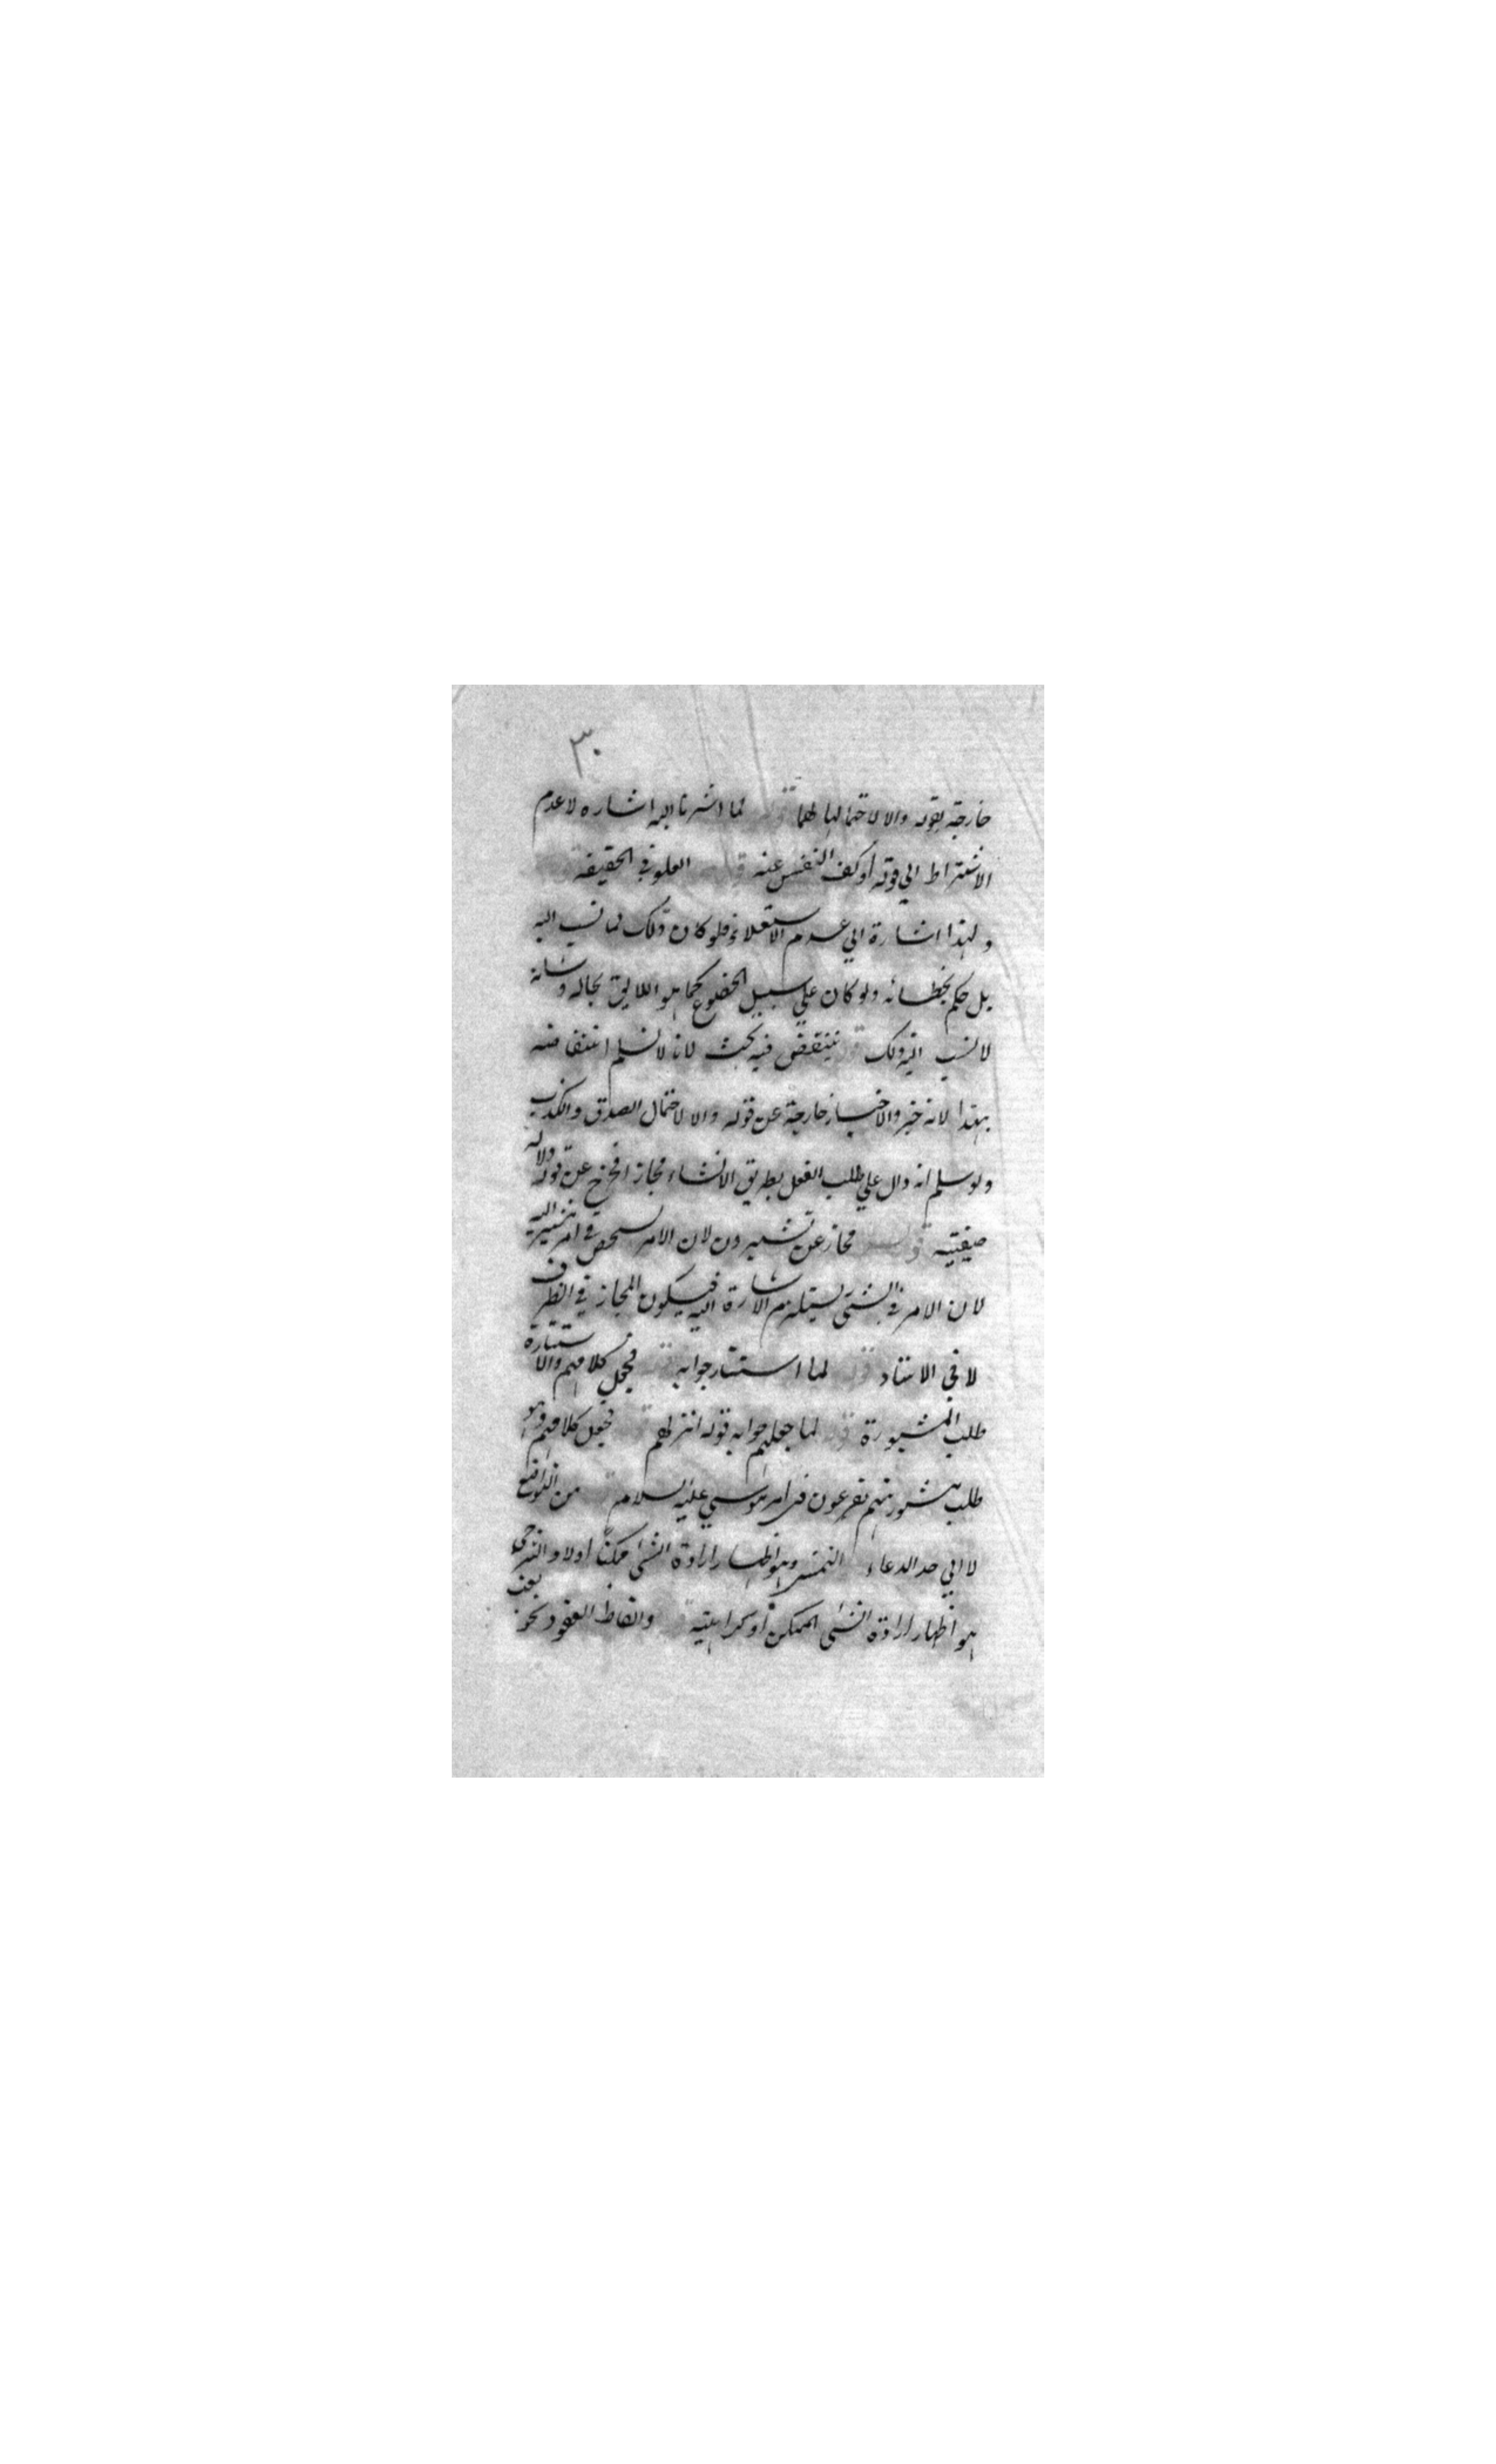 ٣٠
خارجة بقوله والا لاحتمالها لهما قوله لما اشرنا اليه اشاره لا عدم
الاشتراط الى قوله أو كف النفس عنه قوله العلو في الحقيقة
ولهذا اشارة الى عدم الاستعلاء فلو كان ذلك لما نسب اليه
بل حكم بخطائه ولو كان على سبيل الخضوع كما هو اللايق بحاله وشانه
لا نسب الى ذلك قوله ينتقض فيه بحث لانا لا نسلم انتقاضه
بهذا لانه خبر والاخبار خارجة عن قوله والا لاحتمال الصدق والكذب
ولو سلم انه دال على طلب الفعل بطريق الانشاء مجازا فخرج عن قوله دلالة
صيغية قوله مجاز عن تشيرون لان الامر في
لان الامر في الشئ يستلزم الاشارة اليه فيكون المجاز في الطرف
لا في الاسناد قوله لما استشار جوابه قوله فجعل كلامهم والاستشارة
طلب المشورة قوله لما جعلهم جوابه قوله انزلهم قوله فجعل كلامهم وهو
طلب مشورتهم لفرعون في امر موسى عليه السلام من التواضع
لا الى حد الدعاء التمنى وهو اظهار ارادة الشئ ممكنا أو لا والترجى
هو اظهار ارادة الشئ الممكن أو كراهيته والفاظ العقود نحو بعت